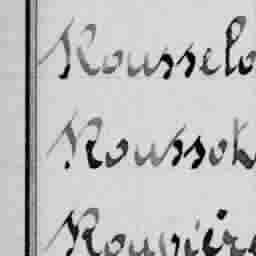 Rousselo
Roussot
Rouvière